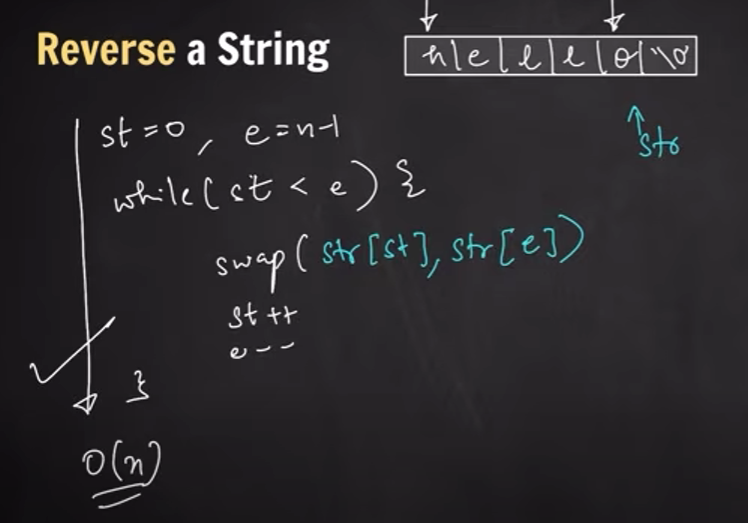 Reverse a String
h|e|l|l|o|\0
str
st=0, e=n-1
while(st < e) {
swap(str[st], str[e])
st++
e--
}
O(n)